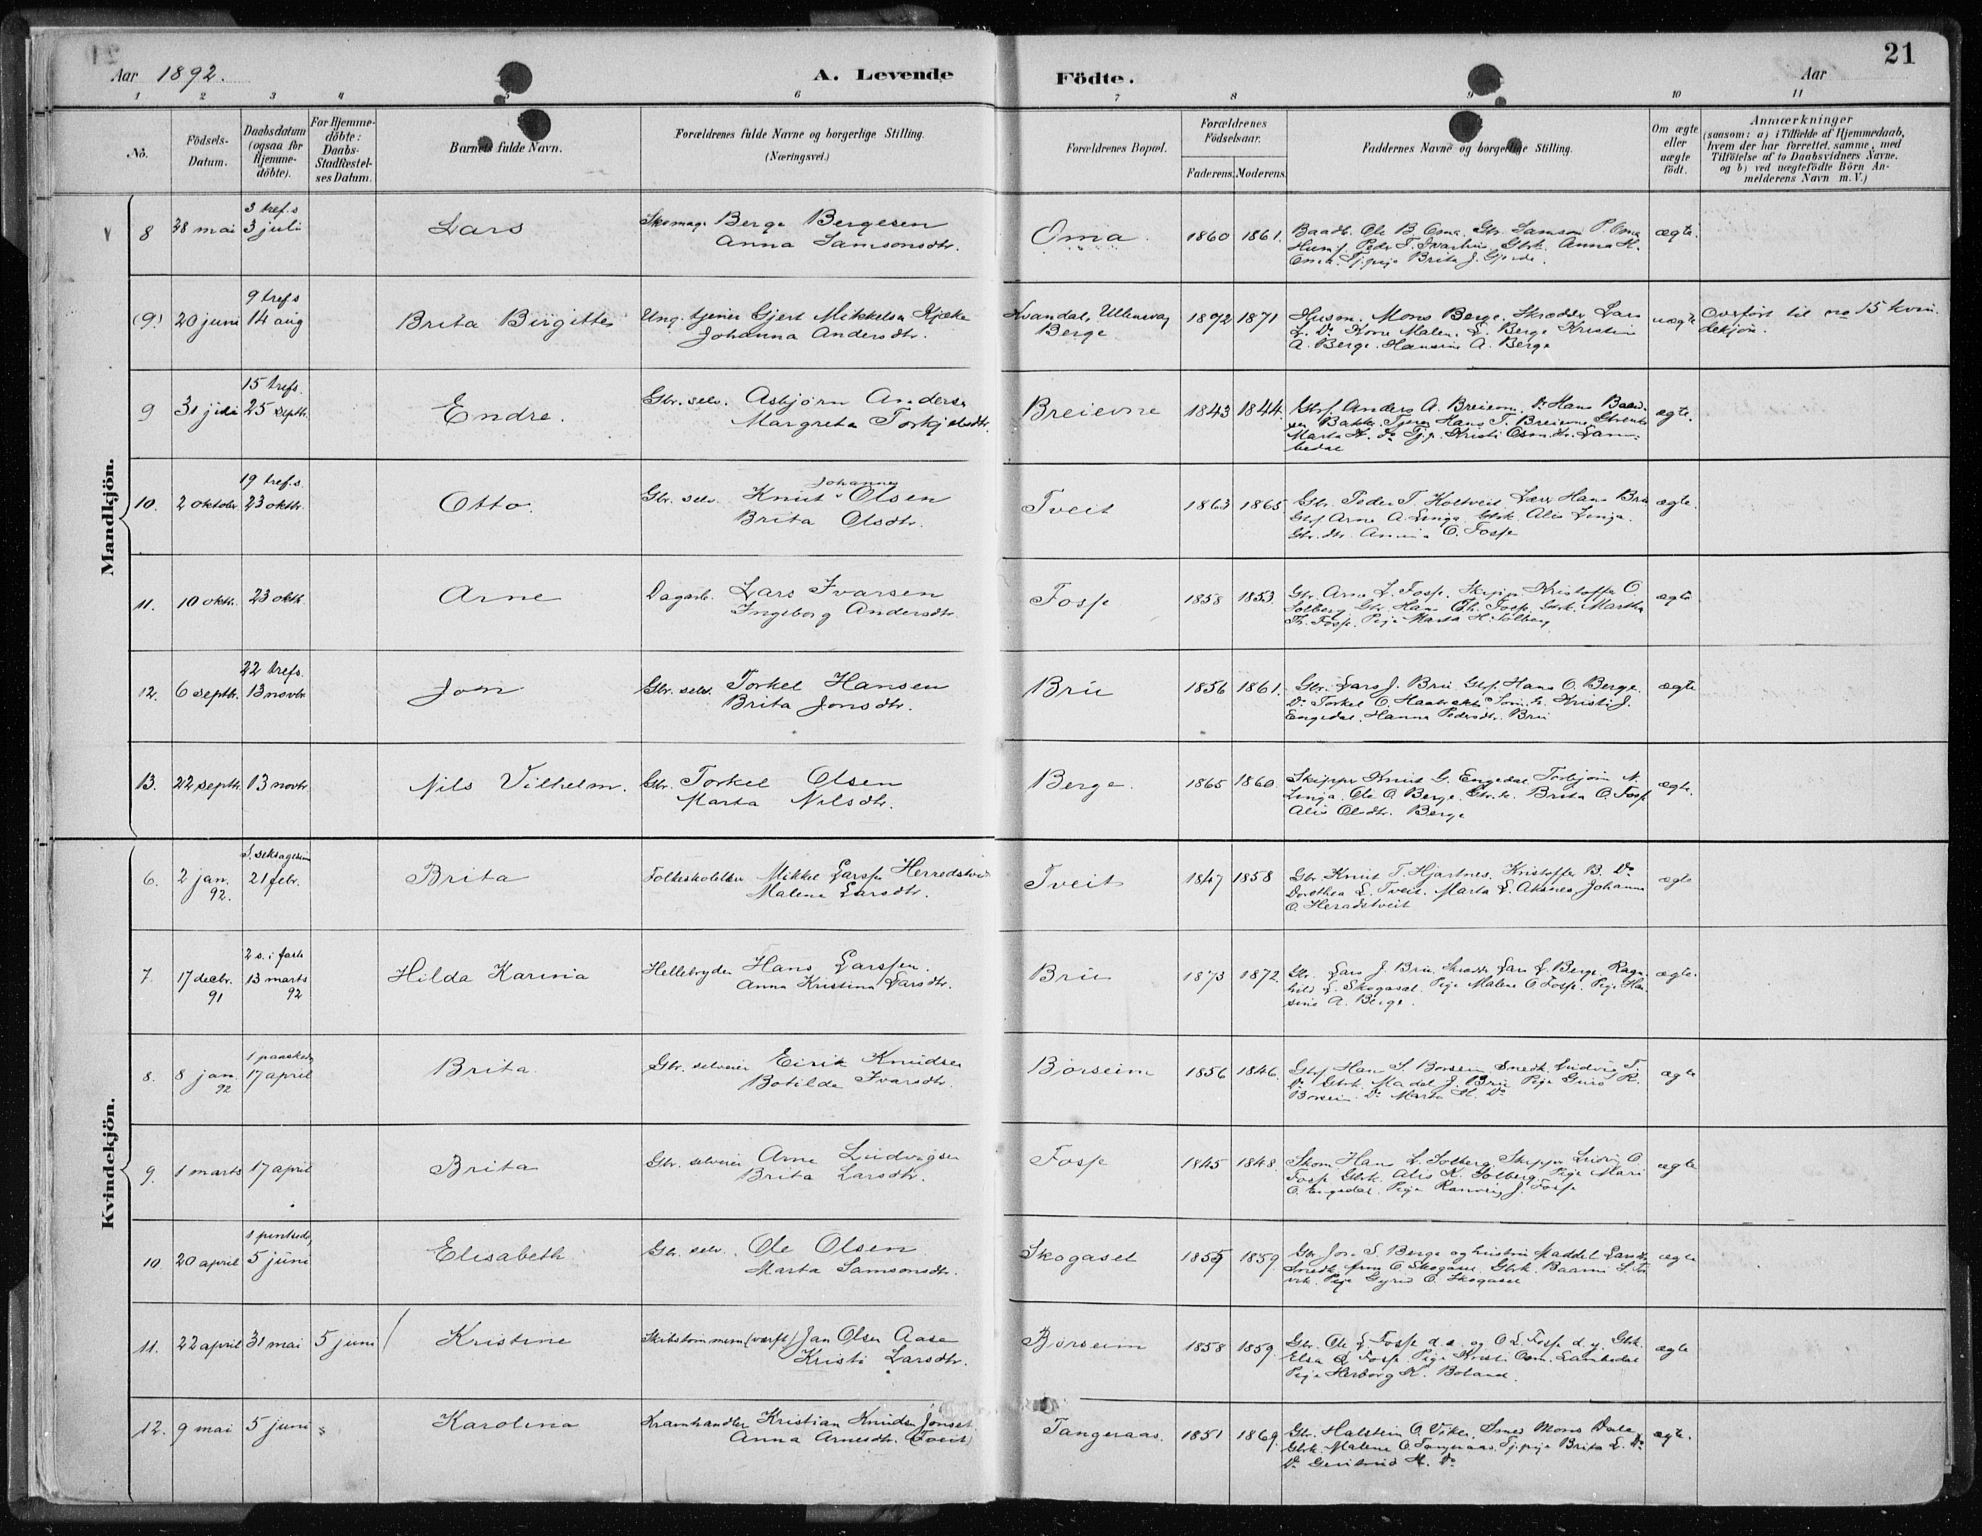 Aar 1892.
A. Levende
Födte.
Aar
21
1 2 3 4 5 6 7 8 9 10 11
No.
Födsels-
Datum.
Daabsdatum
(ogsaa for
Hjemme-
döbte).
For Hjemme-
döbte:
Daabs-
Stadfæstel-
ses Datum.
Barnets fulde Navn.
Forældrenes fulde Navne og borgerlige Stilling.
(Næringsvei.)
Forældrenes Bopæl.
Forældrenes
Födselsaar.
Faderens. Moderens.
Faddernes Navne og borgerlige Stilling.
Om ægte
eller
uægte
födt.
Anmærkninger
(saasom: a) i Tilfælde af Hjemmedaab,
hvem der har forrettet samme, med
Tilföielse af to Daabsvidners Navne.
og b) ved uægtefödte Börn An-
melderens Navn m. V.)
Mandkjön.
3 tref.s
8 28 mai 3 juli Lars Skomag. Berge Bergesen
Anna Samsonsdtr.
Oma 1860 1861. Baadb. Ole B. Oma. Gbr. Samson P. Oma
Husm. Peder T. Anna
Brita J. Gjerde.
ægte.
9 tref.s
(9.) 20 juni 14 aug Brita Birgitte Ung. tjener Gjert Mikkelsen Kjæke
Johanna Andersdtr.
Kvandal, Ullensvag
Berge
1892 1871 Husm. Mons Berge. Skrædder Lars
L. Do Kone Malen. L. Berge Kristin
A. Berge. Hansine A. Berge
uægte Overført til no 15 kvin-
dekjøn.
15 trefs.
9 31 juli 25 septbr. Endre. Gbr. selv. Asbjørn Anders
Margreta Torkjelsdtr.
Breievne 1843 1844. Gbrs. Anders A. Breievn. Hans
Bakke. Hans T. Breievne
Marta Kristi
ægte.
19 tref.s.
10. 2 oktobr 23 oktbr. Otto. Gbr. selv. Knut Johannes Olsen
Brita Olsdtr.
Tveit 1863 1865 Gbr. Peder T. Holtveit Lærer Hans Bru
Gbrs Arne A. Linga. Gbrk. Alis Linga.
Gbr. dtr. O. Fosse
ægte.
11. 10 oktbr. 23 oktb. Arne Dagarb. Lars Ivarsen
Ingeborg Andersdtr.
Fosse 1858 1853. Gbr. Arne L. Fosse. Kristoffer O
Solberg Gbr. Hans Fosse. Gbrk. Martha
Th. Fosse. Pige Marta H. Solberg
ægte
22 trefs.
12. 6 septbr. 13 novbr Jon Gbr. selv. Torkel Hansen
Brita Jonsdtr.
Brü 1856 1861. Gbr. Lars J. Brü Gbs. Hans O. Berge.
Do Torkel O. Kristi J.
Engedal. Hanna Pedersdtr. Brü
ægte
13. 22 septbr. 13 novbr Nils Vilhelm. Gbr. Torkel Olsen
Marta Nilsdtr.
Berge. 1865 1860. Skipper Knut G. Engedal Torbjørn N.
Linga. Ole O. Berge. Gbr.k. Brita O. Fosse
Alis Olsdtr. Berge
ægte.
Kvindekjön.
S. seksagesim
6. 2 jan. 92. 21 febr. Brita Folkeskolelær Mikkel Larsen Herredstvei
Malene Larsdtr.
Tveit 1847 1858 Gbr Knut T. Hjartnes. Kristoffer B. Do
Dorothea L. Tveit. Marta L. Aksnes Johanna
O. Heradstveit
ægte
2 s. i faste
7. 17 decbr. 91 13 marts 92 Hilda Karina Hellebryder Hans Larsen.
Anna Kristina Larsdtr.
Brü 1873 1872. Gbr. Lars J. Brü. Skrædd. Lars L. Berge. Ragn-
hild L. Skogaset. Pige Malene O. Fosse. Pige Han-
sine A. Berge.
ægte.
1 paaskedag
8. 8 jan 92 17 april Brita Gbr. selveier Eirik Knudsen
Botilde Ivarsdtr.
Børseim 1856 1846. Gbrs Hans S. Børseim Snedk. Ludvig T.
Do Gbrk. Madel J. Brü Pige Guro R.
Børseim. Do Marta H. Do
ægte
9. 1 marts 17 april Brita Gbr. selveier Arne Ludvigsen
Brita Larsdtr.
Fosse 1845 1848. Skom. Hans L. Solberg. Skipper Ludv. O
Fosse Gbrk. Alis K. Solberg. Pige Mari
O. Engedal. Pige Ranveig J. Fosse
ægte
1 pintsedag
10 20 april 5 juni Elisabeth Gbr. selv. Ole Olsen
Marta Samsonsdtr.
Skogaset 1855 1859. Gbr Jon S. Berge og hustru Maddel Larsdtr
Snedk. Arne O Skogaset Gbrk.
Pige Gyrid O. Skogaset
ægte
11. 22 april 31 mai 5 juni Kristine Skibstømmerm (værft) Jan Olsen Aase
Kristi Larsdtr.
Børseim 1858 1859. Gbr. Ole L. Fosse d. e. og O L. Fosse d. y. Gbrk.
Elsa Fosse Pige Kristi Osm. Lambedal
Pige Herborg K. Botand.
ægte
12. 9 mai 5 juni Karolina Kramhandler Kristian Knudsen Jonset
Anna Arnesdtr. (Tveit)
Tangeraas. 1851 1869. Gbr. Halstein O. Vike. Smed Mons Dale
Gbrk. Malene O. Tangeraas. Tj.pige Brita L. Do
Do H. Do
ægte.